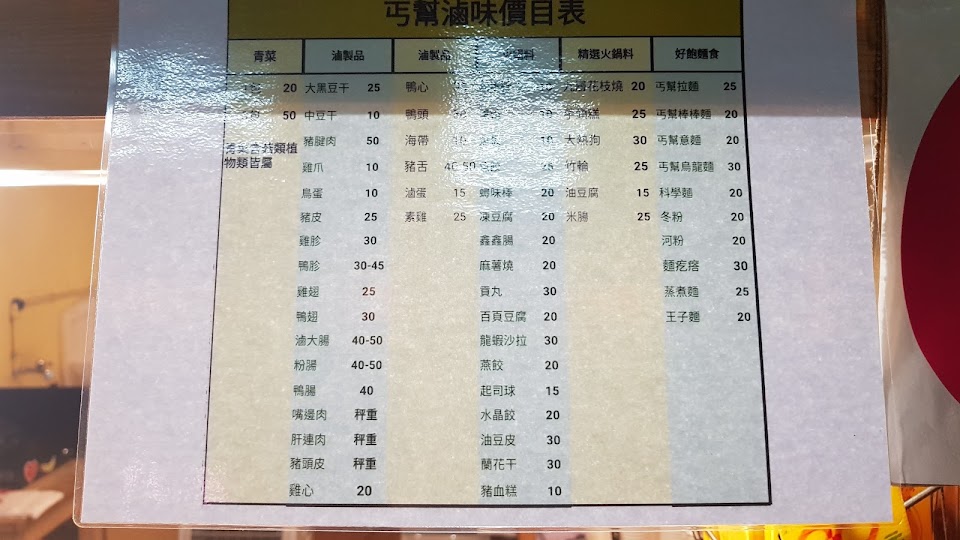 丐幫滷味價目表
青菜 滷製品 滷製品 精選火鍋料 好飽麵食
20 大黑豆干 25 鴨心 花枝燒 20 丐幫拉麵 25
50 中豆干 10 鴨頭 25 丐幫棒棒麵 20
豬腱肉 50 海帶 10 大熱狗 30 丐幫意麵 20
物類皆屬 雞爪 10 豬舌 40-50 25 竹輪 25 丐幫烏龍麵 30
鳥蛋 10 滷蛋 15 蟳味棒 20 油豆腐 15 科學麵 20
豬皮 25 素雞 25 凍豆腐 20 米腸 25 冬粉 20
雞胗 30 鑫鑫腸 20 河粉 20
鴨胗 30-45 麻薯燒 20 麵疙瘩 30
雞翅 25 貢丸 30 蒸煮麵 25
鴨翅 30 百頁豆腐 20 王子麵 20
滷大腸 40-50 龍蝦沙拉 30
粉腸 40-50 燕餃 20
鴨腸 40 起司球 15
嘴邊肉 秤重 水晶餃 20
肝連肉 秤重 油豆皮 30
豬頭皮 秤重 蘭花干 30
雞心 20 豬血糕 10